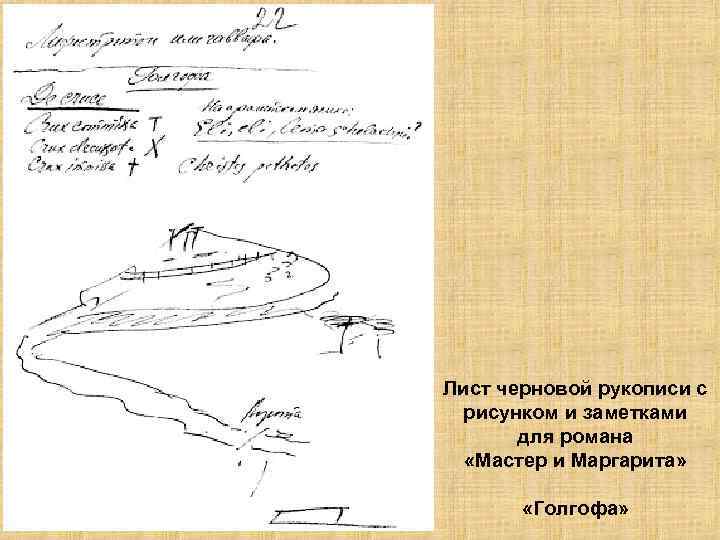 22
Лифостротон или гаввафа.
Голгофа
De cruce
На арамейском языке:
Crux commissa T
Eli, eli, lema
Crux decussata X
Crux immissa †
Christus
Ворота
Лист черновой рукописи с
рисунком и заметками
для романа
«Мастер и Маргарита»
«Голгофа»